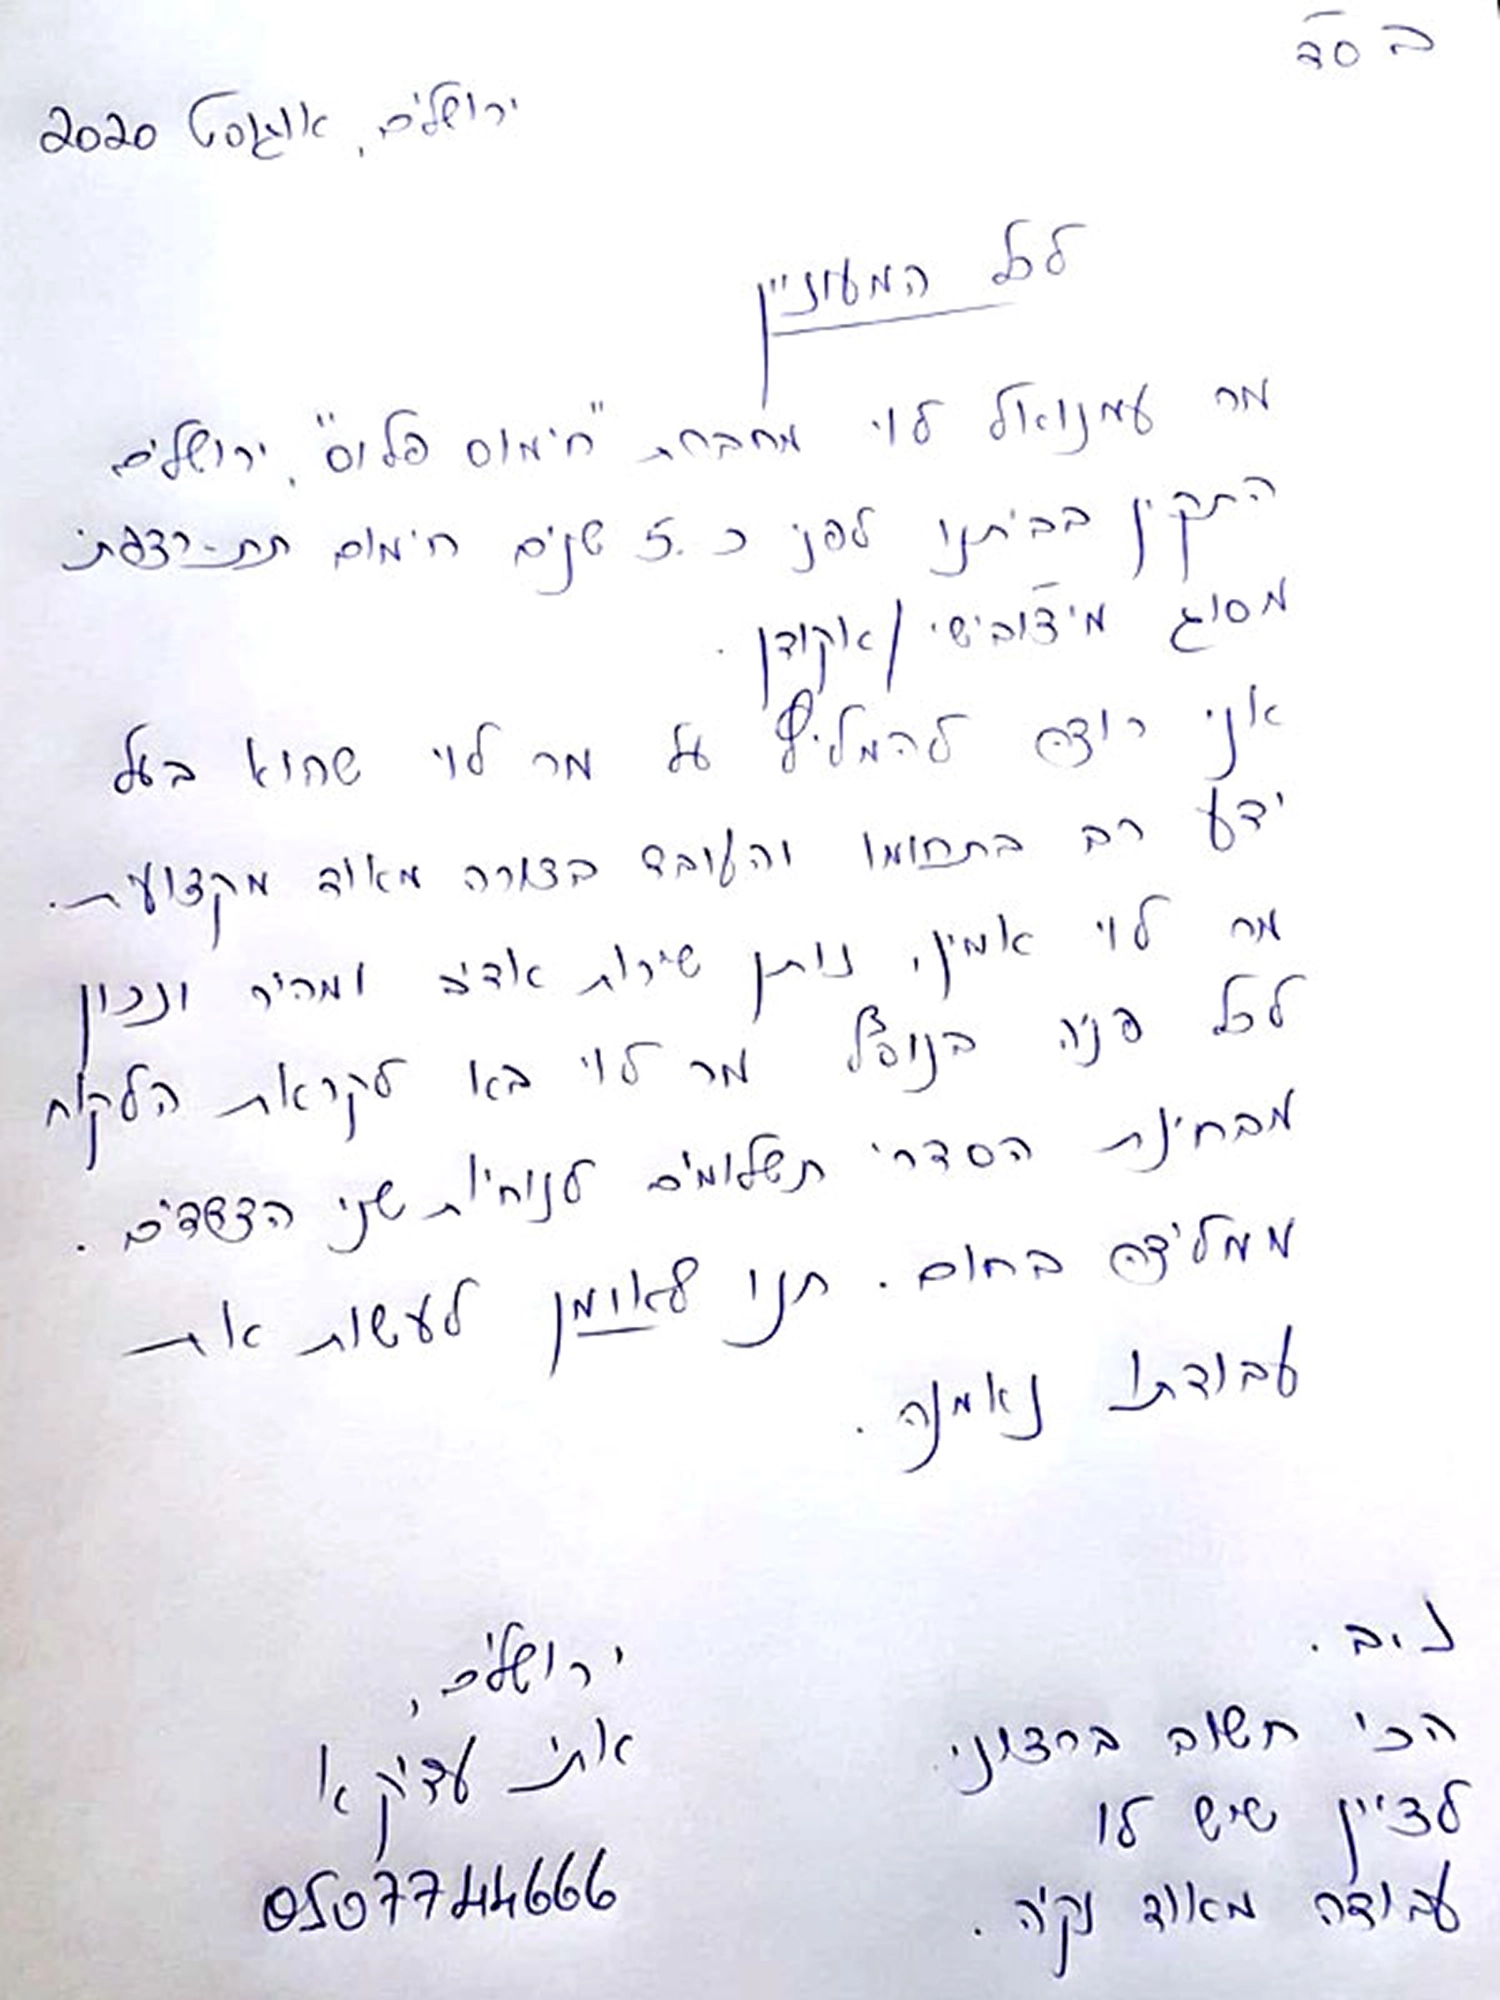 בסד
ירושלים, אוגוסט 2020
לכל המעוניין
מר עמנואל לוי מחברת "חימום פלוס", ירושלים
התקין בביתנו לפני כ 5 שנים חימום תת-רצפתי
מסוג מיצובישי / אקודן.
אני רוצה להמליץ על מר לוי שהוא בעל
ידע רב בתחומו והעובד בצורה מאוד מקצועית.
מר לוי אמין, נותן שירות אדיב ומהיר ונכון
לכל פניה בנופל מר לוי בא לקראת הלקוח
מבחינת הסדרי תשלומים לנוחיות שני הצדדים.
ממליצה בחום. תנו לאומן לעשות את
עבודתו נאמנה.
נ.ב.
הכי חשוב ברצוני
לציין שיש לו
עבודה מאוד נקיה.
ירושלים,
אתי
0507744666